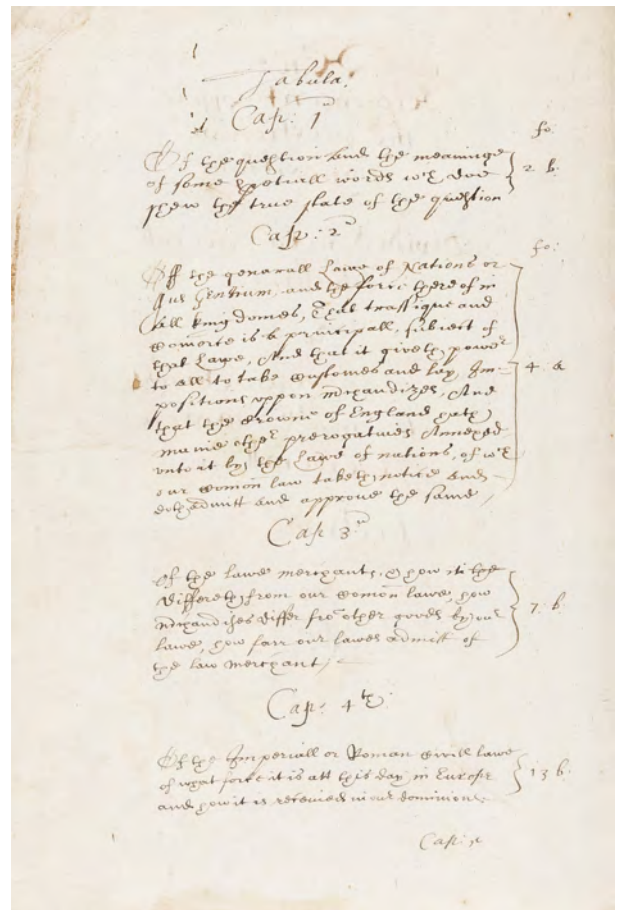 Tabula.
Cap: 1
fo:
Of the question and the meaninge
of some speciall words wch doe 2 b.
shew the true state of the question
Cap: 2
fo:
Off the generall Lawe of Nations or
Jus Gentium, and the force thereof in
all kingdomes, That traffique and
Comerce is a principall, subiect of
that Lawe, And that it giveth power
to all to take Customes and lay Im- 4 a
positions uppon mrchandizes, And
that the Crowne of England hath
manie other prerogatives Annexed
unto it by the Lawe of nations, of wch
our Comon law taketh notice and
doth admitt and approve the same,
Cap 3
Of the lawe merchant, & how it the
differeth from our Comon lawe, how
mrchandises differ fro other goods by our 7. b
lawe, how farr our lawes admitt of
the law merchant,
Cap: 4th
Of the Imperiall or Roman Civill lawe
of what force it is att this day in Europe 13 b.
and how it is received in our dominions.
Cap: 5